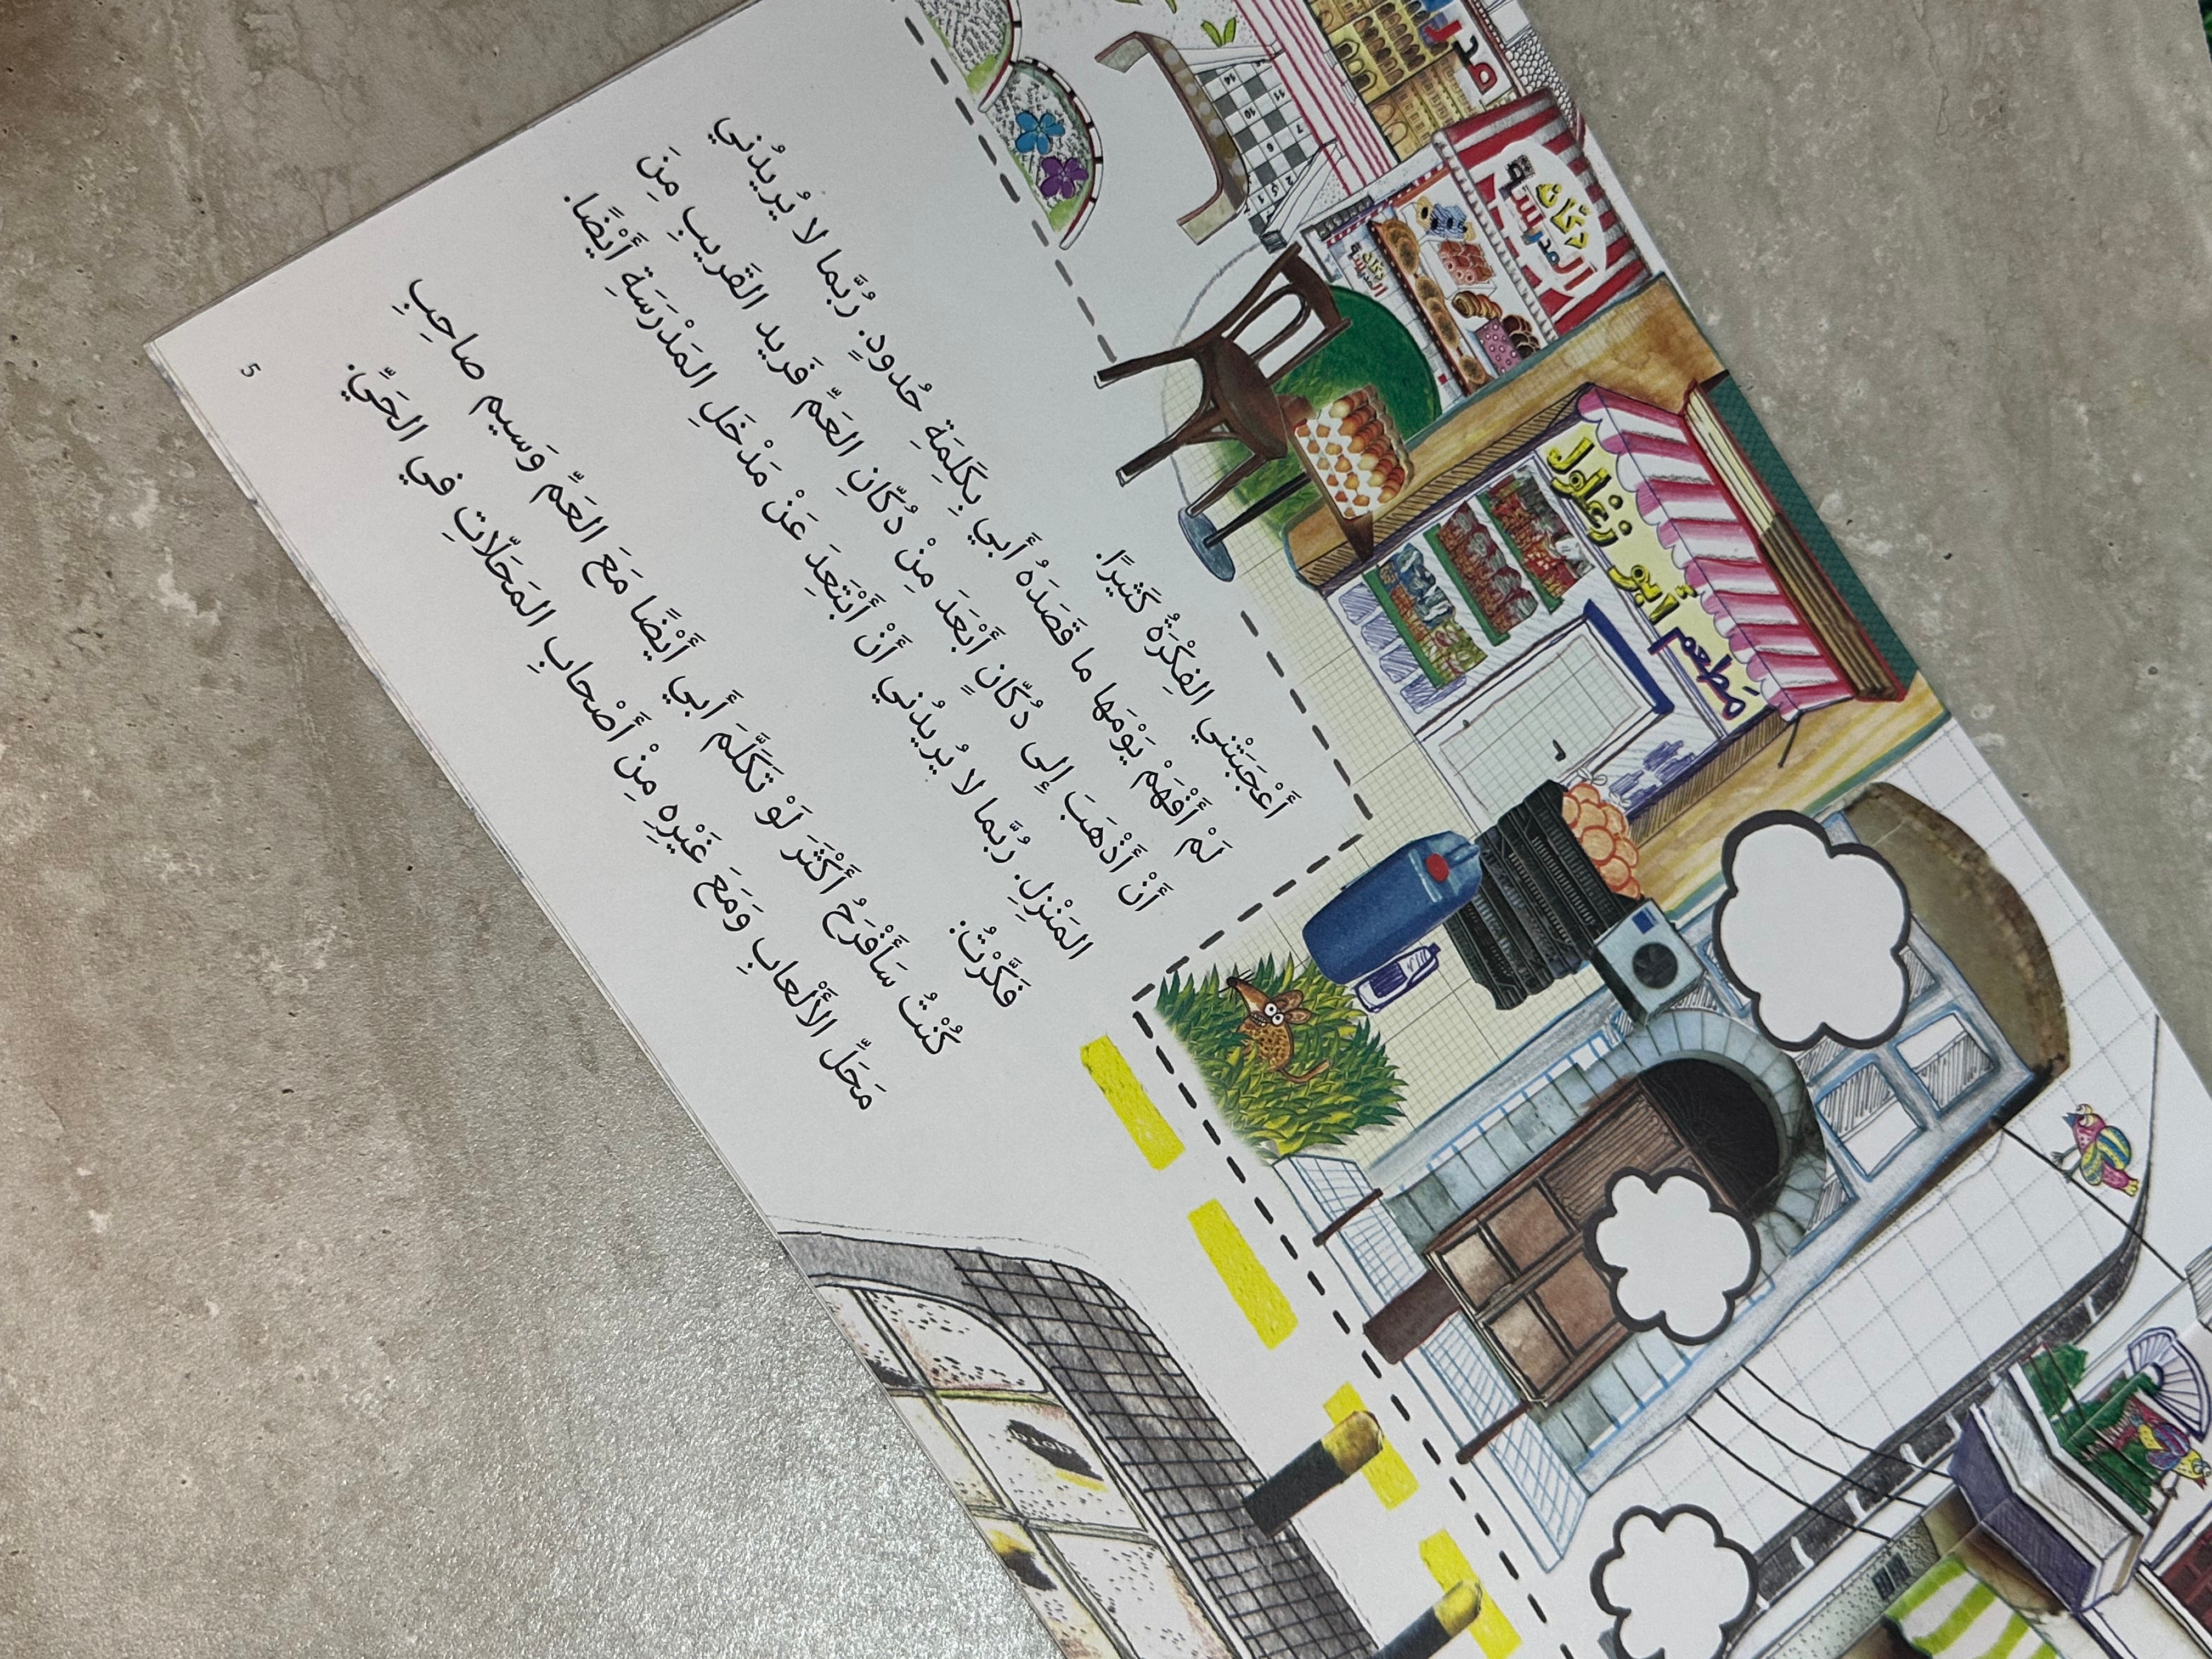 أَعْجَبَتْني الفِكْرَةُ كَثيرًا.
لَمْ أَفْهَمْ يَوْمَها ما قَصَدَهُ أَبي بِكَلِمَةِ حُدودٍ. رُبَّما لا يُريدُني
أَنْ أَذْهَبَ إِلى دُكّانٍ أَبْعَدَ مِنْ دُكّانِ العَمِّ فَريد القَريبِ مِنَ
المَنْزِلِ. رُبَّما لا يُريدُني أَنْ أَبْتَعِدَ عَنْ مَدْخَلِ المَدْرَسَةِ أَيْضًا.
فَكَّرْتُ:
كُنْتُ سَأَفْرَحُ أَكْثَرَ لَوْ تَكَلَّمَ أَبي أَيْضًا مَعَ العَمِّ وَسيم صاحِبِ
مَحَلِّ الأَلْعابِ وَمَعَ غَيْرِهِ مِنْ أَصْحابِ المَحَلّاتِ في الحَيِّ.
5
مطعم أبو زغلول
دكّان
المدرسة
دكان
المدرسة
مدر